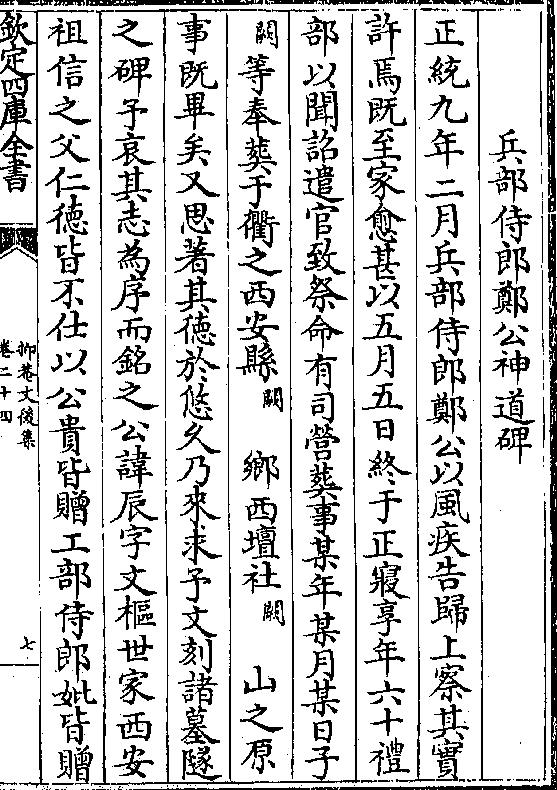 兵部侍郎鄭公神道碑
正統九年二月兵部侍郎鄭公以風疾告歸上察其實
許焉既至家愈甚以五月五日終于正寢享年六十禮
部以聞詔遣官致祭命有司營葬事某年某月某日子
闕等奉葬于衢之西安縣闕 鄉西壇社闕 山之原
事既畢矣又思著其德於悠久乃來求予文刻諸墓隧
之碑予哀其志為序而銘之公諱辰字文樞世家西安
祖信之父仁德皆不仕以公貴皆贈工部侍郎妣皆贈
欽定四庫全書
抑菴文後集
卷二十四
七